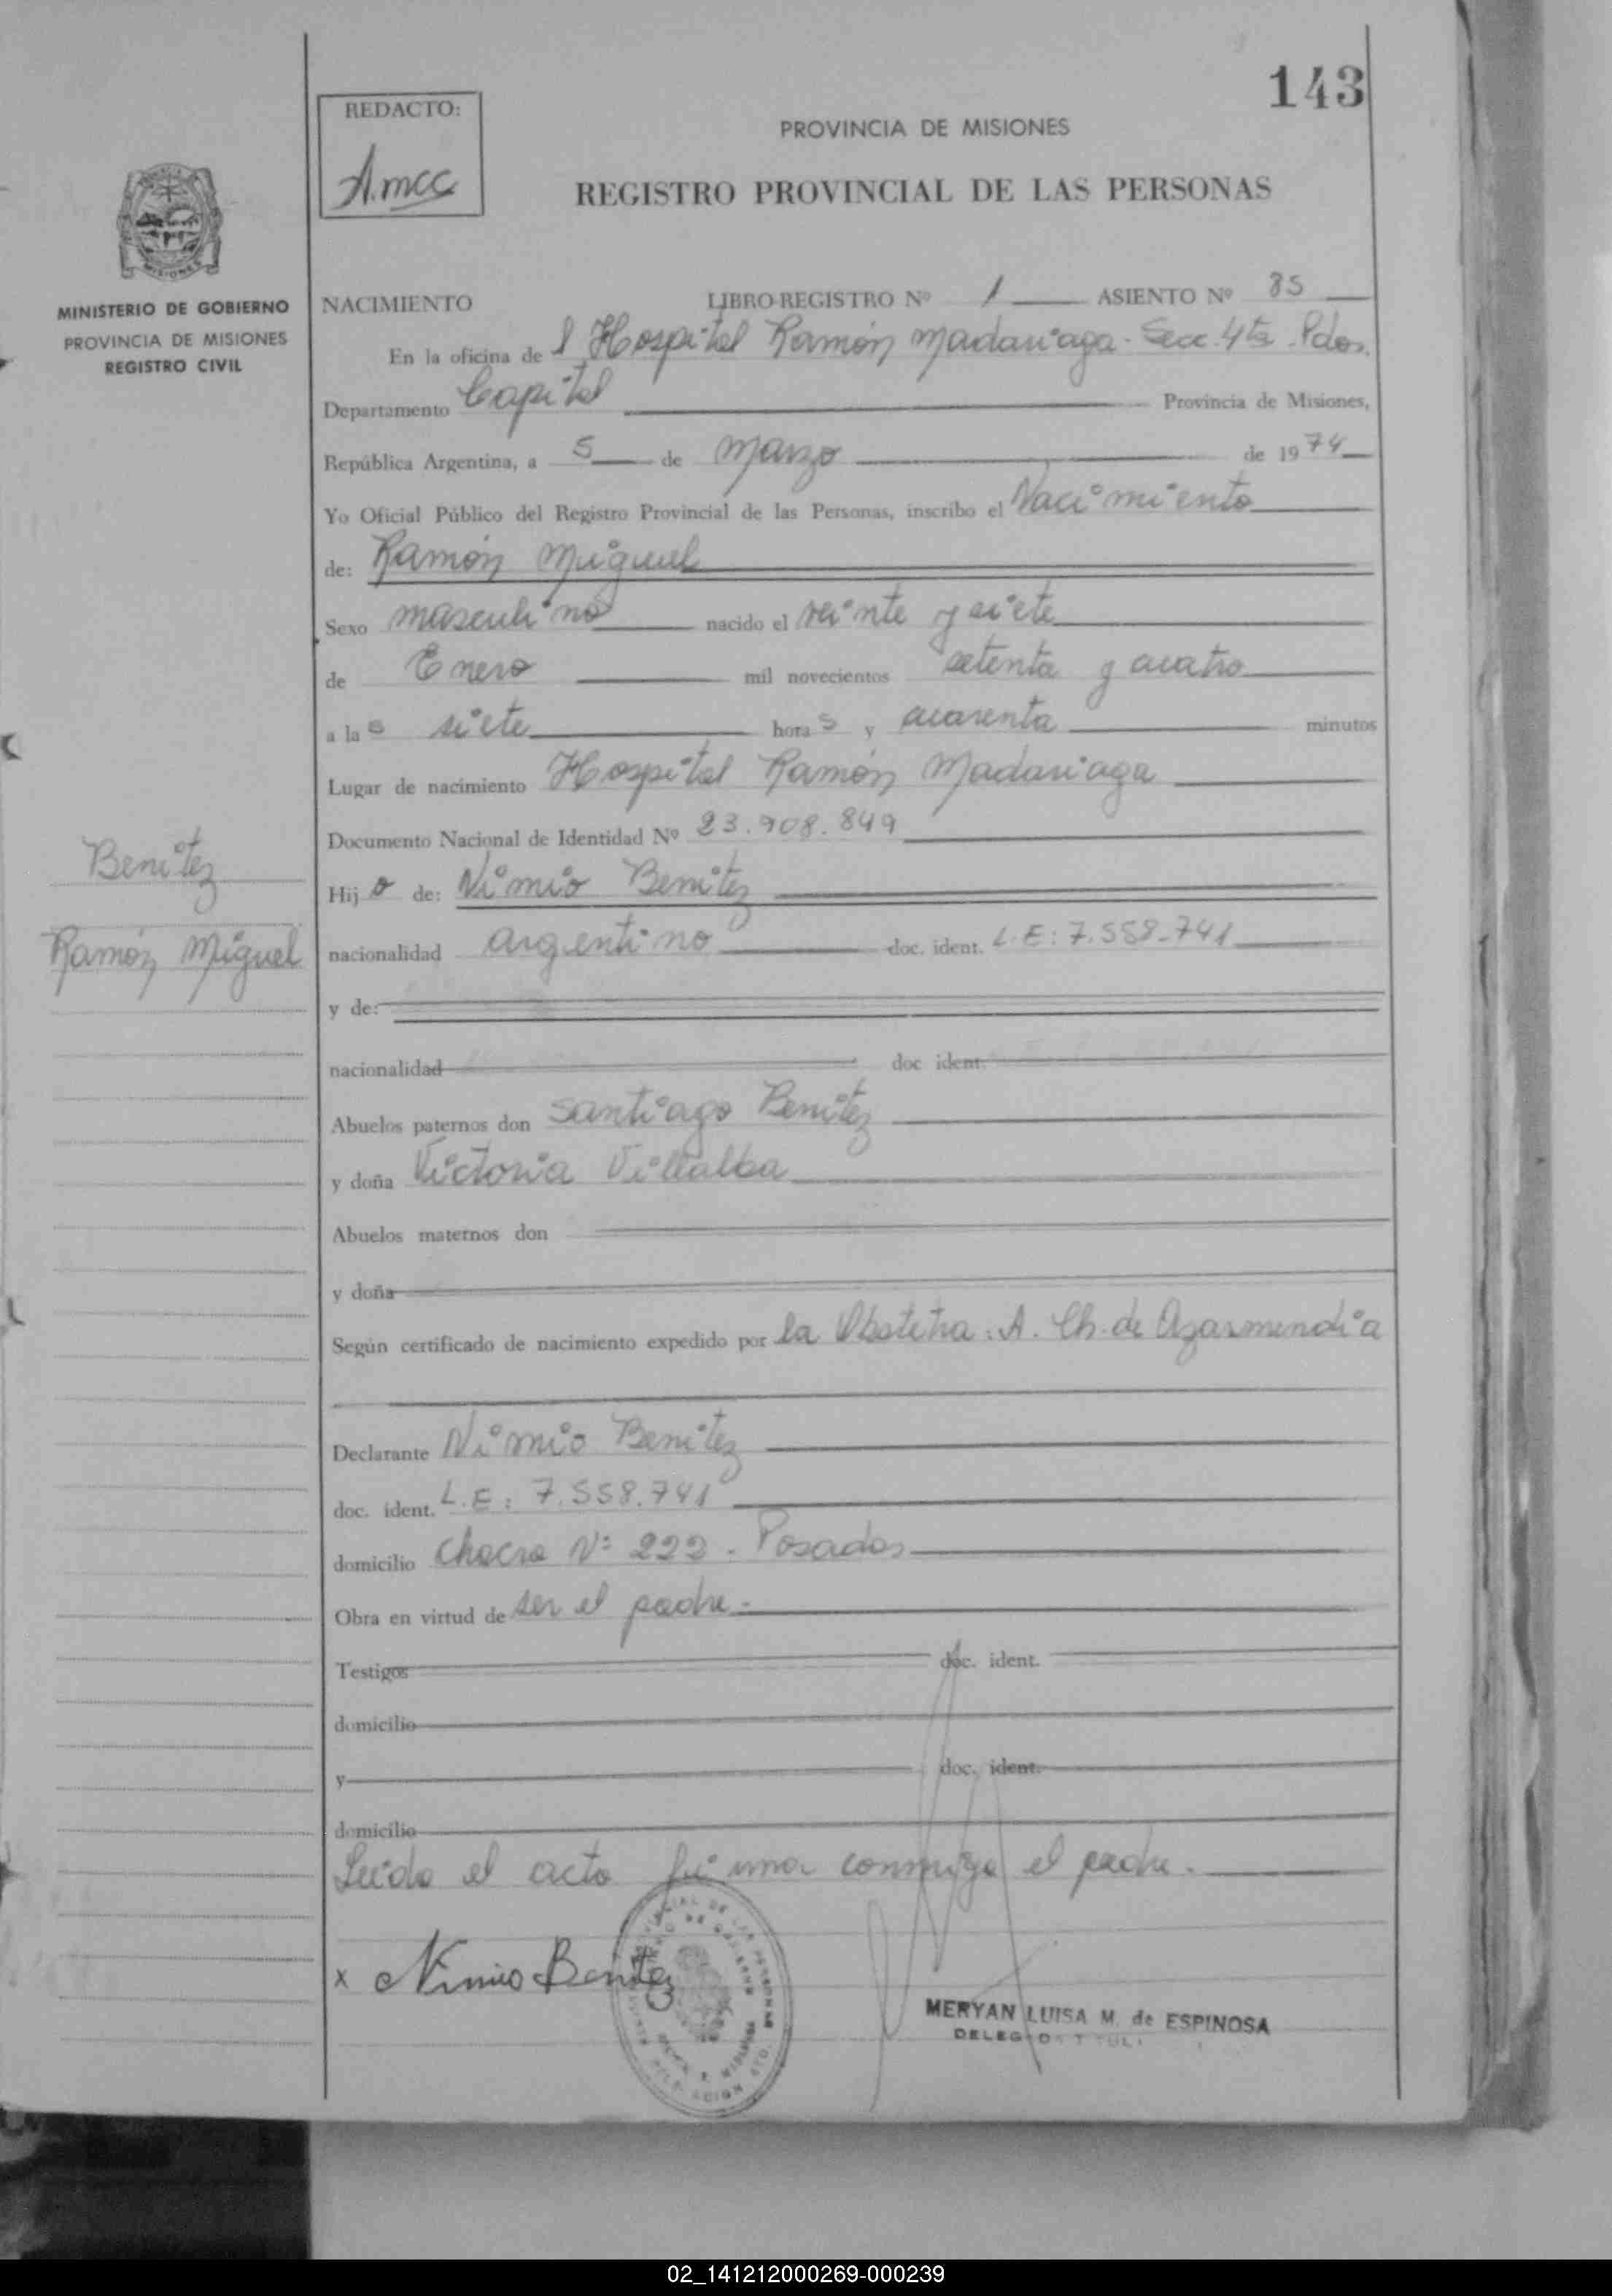 143
REDACTO:
A.mcc
PROVINCIA DE MISIONES
REGISTRO PROVINCIAL DE LAS PERSONAS
MISIONES
MINISTERIO DE GOBIERNO
PROVINCIA DE MISIONES
REGISTRO CIVIL
NACIMIENTO LIBRO-REGISTRO Nº 1 ASIENTO Nº 85
En la oficina de l Hospital Ramón Madariaga. Secc. 4ta. Pdas.
Departamento Capital Provincia de Misiones,
República Argentina, a 5 de Marzo de 1974
Yo Oficial Público del Registro Provincial de las Personas, inscribo el Nacimiento
de: Ramón Miguel
Sexo masculino nacido el veinte y siete
de Enero mil novecientos setenta y cuatro
a las siete horas y cuarenta minutos
Lugar de nacimiento Hospital Ramón Madariaga
Documento Nacional de Identidad Nº 23.908.849
Benitez
Ramón Miguel
Hijo de: Nimio Benitez
nacionalidad argentino doc. ident. L.E: 7.558.741
y de:
nacionalidad doc ident.
Abuelos paternos don Santiago Benitez
y doña Victoria Villalba
Abuelos maternos don
y doña
Según certificado de nacimiento expedido por la Obstetra: A. Ch. de Azarmendia
Declarante Nimio Benitez
doc. ident. L.E: 7.558.741
domicilio Chacra Nº 222. Posadas
Obra en virtud de ser el padre.
Testigos doc. ident.
domicilio
y doc. ident.
domicilio
Leido el acto firma conmigo el padre.
x Nimio Benitez
MERYAN LUISA M. de ESPINOSA
02_141212000269-000239